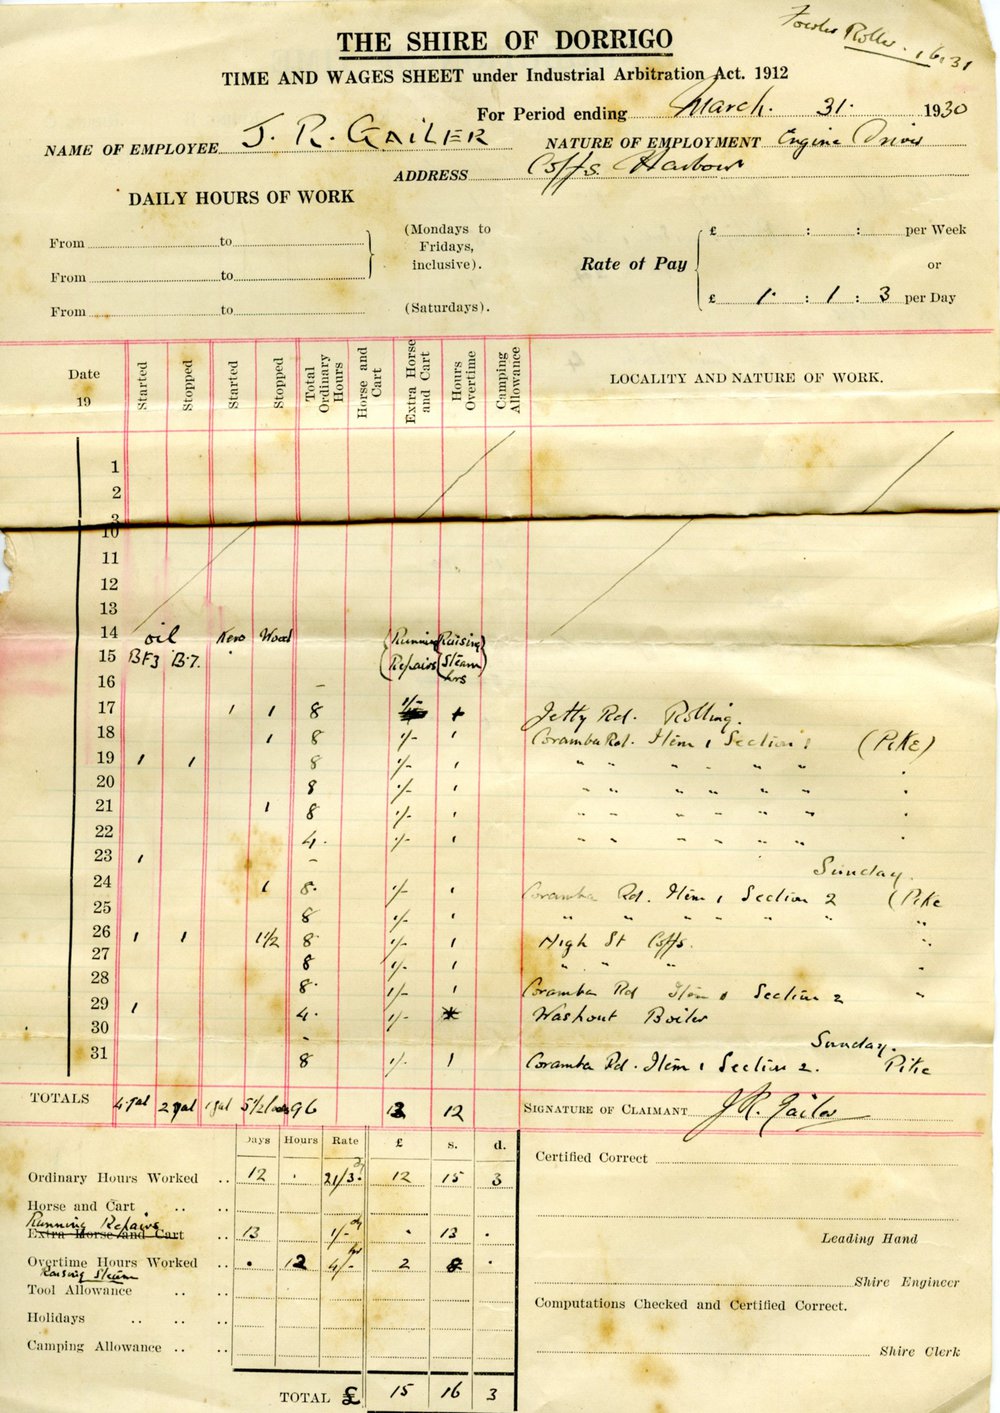 Fowler Roller. 16.31
THE SHIRE OF DORRIGO
TIME AND WAGES SHEET under Industrial Arbitration Act. 1912
For Period ending March. 31. 1930
NAME OF EMPLOYEE J. R. GAILER NATURE OF EMPLOYMENT Engine Driver
ADDRESS Coffs Harbour
DAILY HOURS OF WORK
From to (Mondays to Fridays, inclusive).
From to
From to (Saturdays).
Rate of Pay
£ : : per Week
or
£ 1. : 1 : 3 per Day
Date 19 Started Stopped Started Stopped Total Ordinary Hours Horse and Cart Extra Horse and Cart Hours Overtime Camping Allowance LOCALITY AND NATURE OF WORK.
1
2
3
10
11
12
13
14 oil Kero Wood (Running (Raising
15 BF3 B.7. (Repairs (Steam hrs
16 –
17 1 1 8 1/- Jetty Rd. Rolling.
18 1 8 1/- 1 Coramba Rd. Item 1 Section 1 (PiKE)
19 1 1 8 1/- 1 " " " " " " "
20 8 1/- 1 " " " " " " "
21 1 8 1/- 1 " " " " " " "
22 4. 1/- 1 " " " " " " "
23 1 – Sunday.
24 1 8. 1/- 1 Coramba Rd. Item 1 Section 2 (PiKe
25 8 1/- 1 " " " " " " "
26 1 1 1 1/2 8 1/- 1 High St Coffs. "
27 8 1/- 1 " " " "
28 8. 1/- 1 Coramba Rd Item 1 Section 2 "
29 1 4. 1/- * Washout Boiler
30 – Sunday.
31 8 1/- 1 Coramba Rd. Item 1 Section 2. PiKe
TOTALS 4 gal 2 gal 1 gal 5 1/2 loads 96 13 12 SIGNATURE OF CLAIMANT J R. Gailer
Days Hours Rate £ s. d.
Ordinary Hours Worked 12 . 21/3 12 15 3
Horse and Cart
Running Repairs
Extra Horse and Cart 13 1/- . 13 .
Overtime Hours Worked . 12 4/- 2 8 .
Raising Steam
Tool Allowance
Holidays
Camping Allowance
TOTAL £ 15 16 3
Certified Correct
Leading Hand
Shire Engineer
Computations Checked and Certified Correct.
Shire Clerk